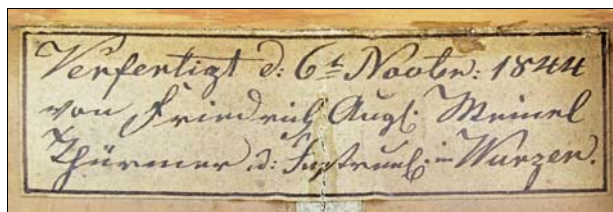 Verfertigt d: 6t Novbr: 1844
von Friedrich Augſ: Meinel
Thürmer u: Inſtrum: in Wurzen.